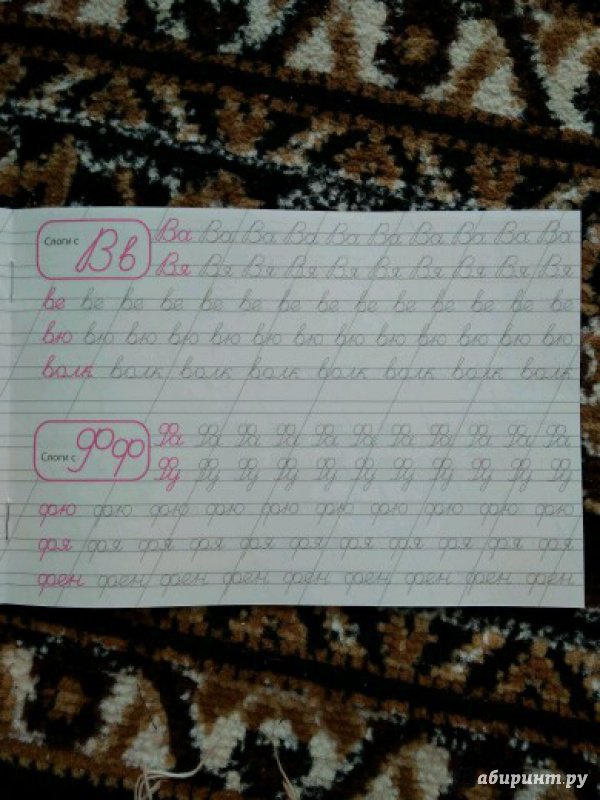 Слоги с Вв
Ва Ва Ва Ва Ва Ва Ва Ва Ва Ва
Вя Вя Вя Вя Вя Вя Вя Вя Вя Вя
ве ве ве ве ве ве ве ве ве ве ве ве ве ве
вю вю вю вю вю вю вю вю вю вю вю вю вю
волк волк волк волк волк волк волк волк
Слоги с Фф
Фа Фа Фа Фа Фа Фа Фа Фа Фа Фа Фа
Фу Фу Фу Фу Фу Фу Фу Фу Фу Фу Фу
фю фю фю фю фю фю фю фю фю фю
фя фя фя фя фя фя фя фя фя фя фя
фен фен фен фен фен фен фен фен фен
абиринт.ру